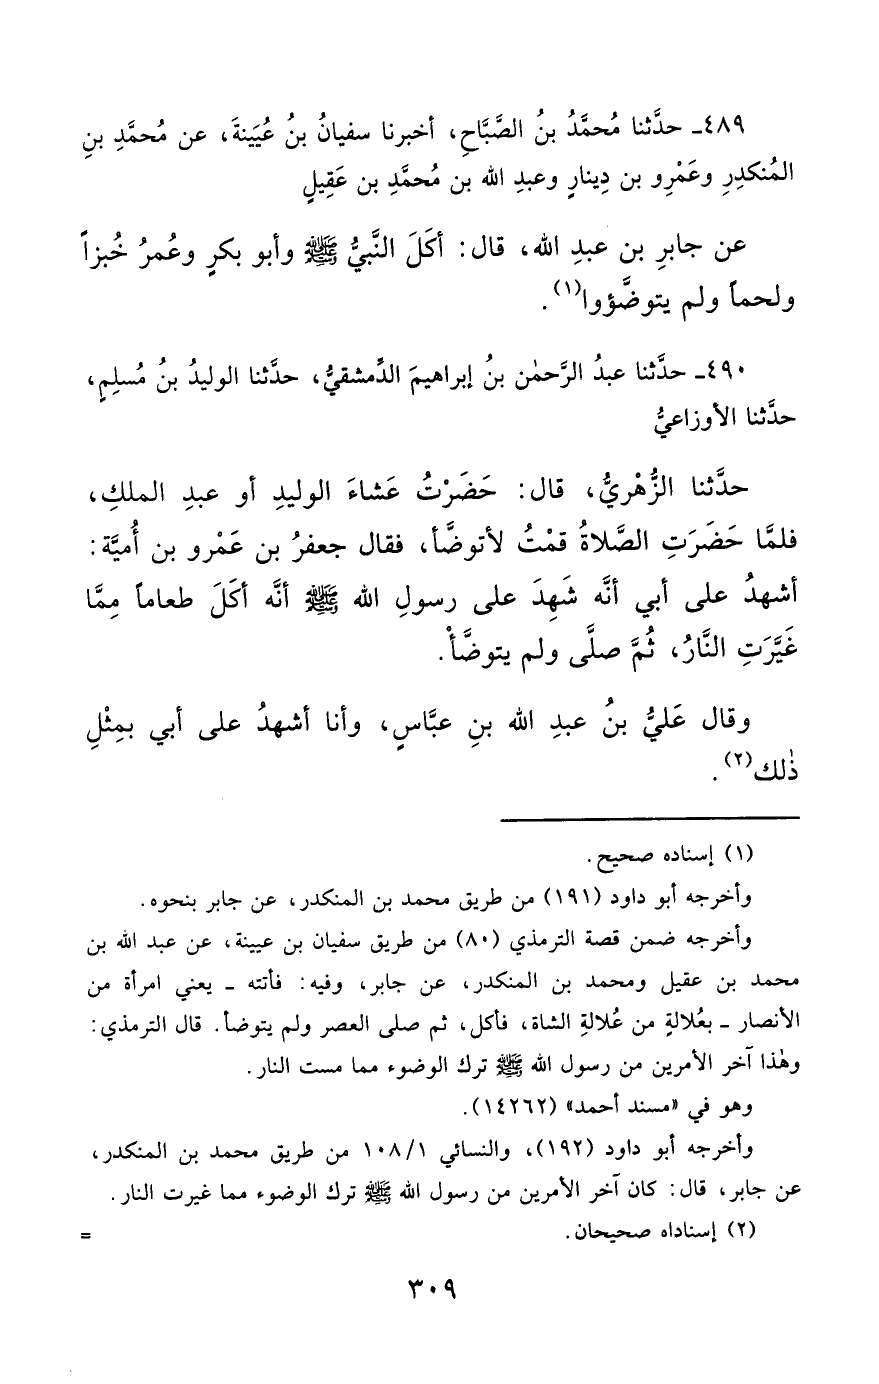 ٤٨٩ـ حدَّثنا مُحمَّدُ بنُ الصَّبَّاحِ، أخبرنا سفيانُ بنُ عُيَينةَ، عن مُحمَّدِ بنِ
المُنكدِرِ وعَمْرِو بن دِينارٍ وعبدِ الله بن مُحمَّدِ بن عَقِيلٍ
عن جابرِ بن عبدِ الله، قال: أكَلَ النَّبيُّ ﷺ وأبو بكرٍ وعُمرُ خُبزاً
ولحماً ولم يتوضَّؤوا(١).
٤٩٠ـ حدَّثنا عبدُ الرَّحمٰن بنُ إبراهيمَ الدِّمشقيُّ، حدَّثنا الوليدُ بنُ مُسلِمٍ،
حدَّثنا الأوزاعيُّ
حدَّثنا الزُّهْريُّ، قال: حَضَرْتُ عَشاءَ الوليدِ أو عبدِ الملكِ،
فلمَّا حَضَرَتِ الصَّلاةُ قمْتُ لأتوضَّأ، فقال جعفرُ بن عَمْرو بن أُميَّة:
أشهدُ على أبي أنَّه شَهِدَ على رسولِ الله ﷺ أنَّه أكَلَ طعاماً مِمَّا
غَيَّرَتِ النَّارُ، ثُمَّ صلَّى ولم يتوضَّأْ.
وقال عَليُّ بنُ عبدِ الله بنِ عبَّاسٍ، وأنا أشهدُ على أبي بمِثْلِ
ذٰلك(٢).
(١) إسناده صحيح.
وأخرجه أبو داود (١٩١) من طريق محمد بن المنكدر، عن جابر بنحوه.
وأخرجه ضمن قصة الترمذي (٨٠) من طريق سفيان بن عيينة، عن عبد الله بن
محمد بن عقيل ومحمد بن المنكدر، عن جابر، وفيه: فأتته ـ يعني امرأة من
الأنصار ـ بعُلالةٍ من عُلالةِ الشاة، فأكل، ثم صلى العصر ولم يتوضأ. قال الترمذي:
وهٰذا آخر الأمرين من رسول الله ﷺ ترك الوضوء مما مست النار.
وهو في «مسند أحمد» (١٤٢٦٢).
وأخرجه أبو داود (١٩٢)، والنسائي ١٠٨/١ من طريق محمد بن المنكدر،
عن جابر، قال: كان آخر الأمرين من رسول الله ﷺ ترك الوضوء مما غيرت النار.
(٢) إسناداه صحيحان. =
٣٠٩